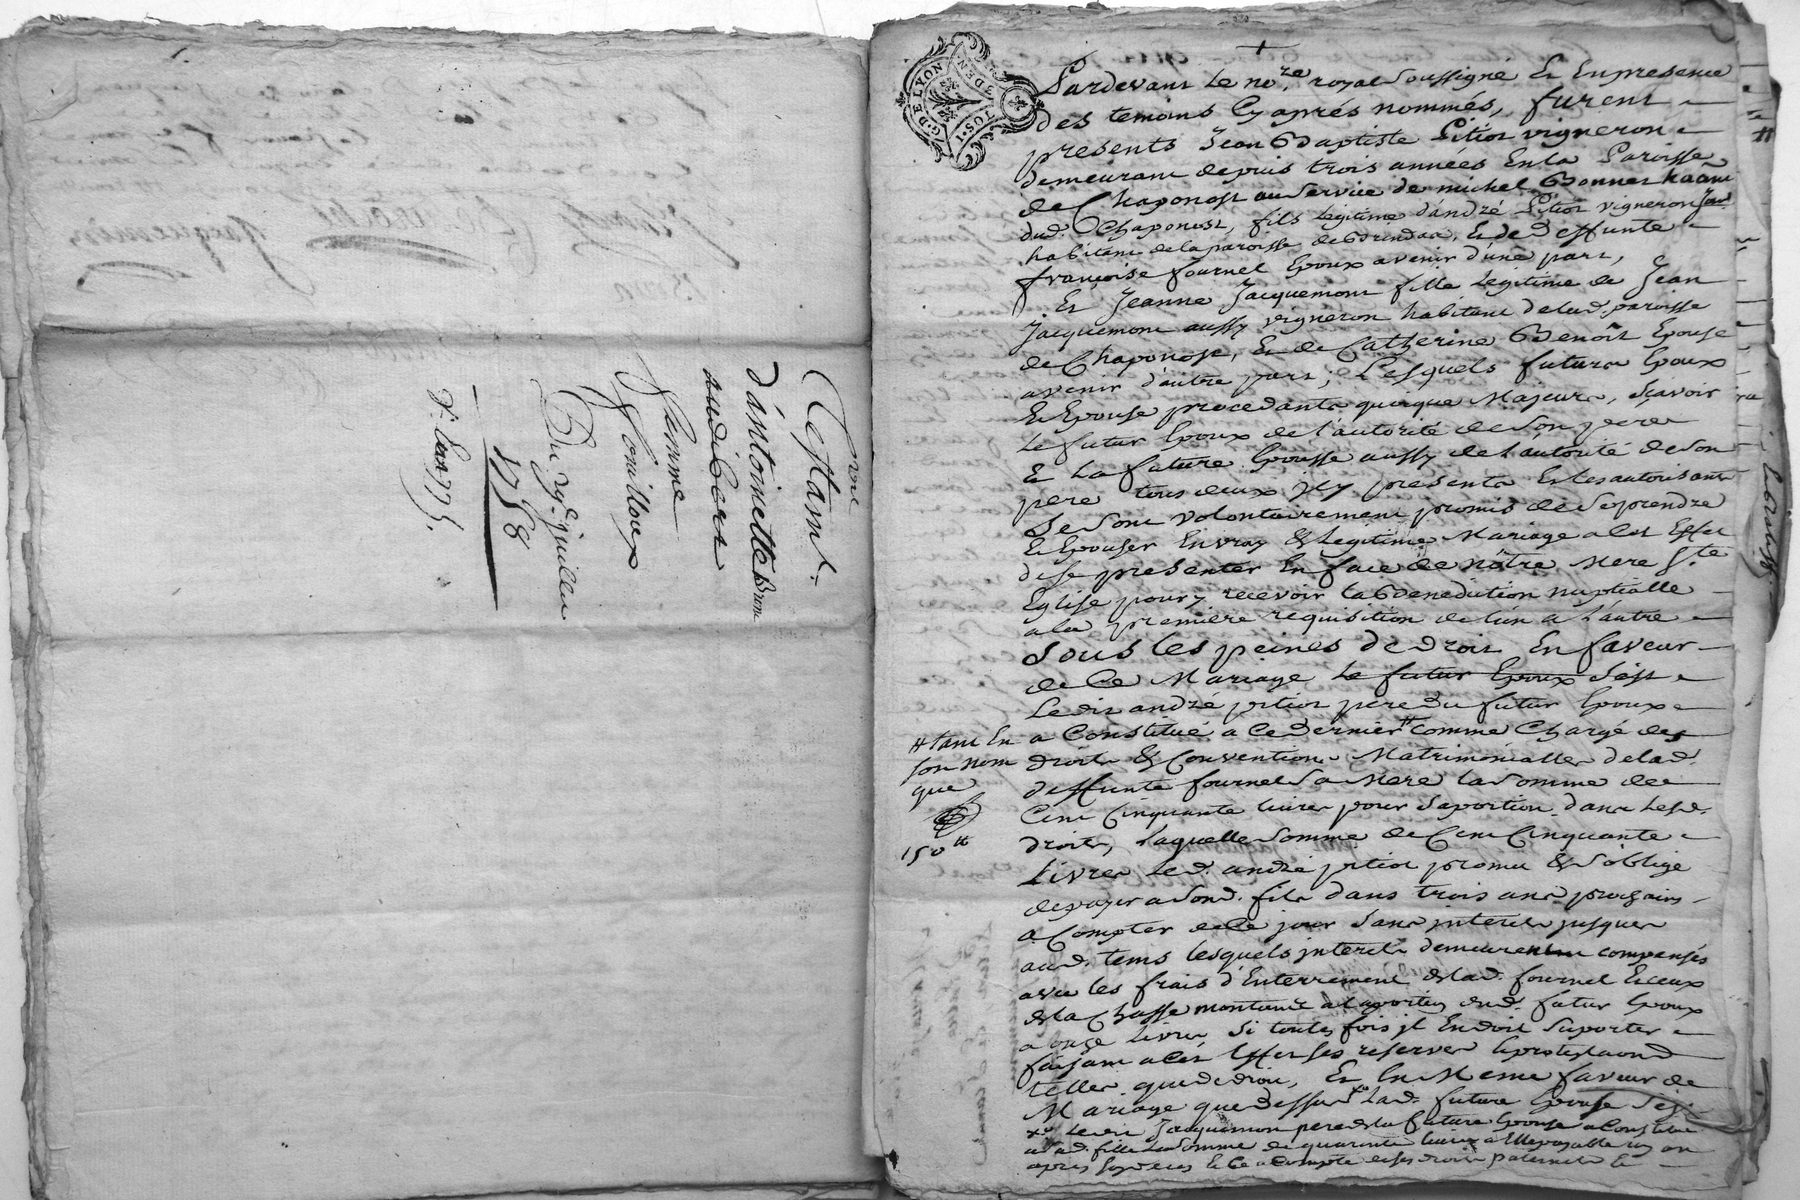 Testamt.
d'antoinette
audibert
femme
Du 29e Juillet
1758
G. DE LYON
Pardevant le nore. royal soussigné Et En presence
des temoins Cy aprés nommés, furent
presents Jean Baptiste pitiot vigneron
demeurant depuis trois années En la Paroisse
de Chaponost au service de michel Bonnet
dud. Chaponost, fils legitime d'andré pitiot vigneron
habitant de la paroisse de Et de deffunte
françoise fournel Epoux avenir d'une part,
Et Jeanne Jacquemont fille legitime de Jean
Jacquemont aussy vigneron habitant de lad. paroisse
de Chaponost, Et de Catherine Benoit Epouse
avenir d'autre part, Lesquels futurs Epoux
Et Epouse procedants quoique Majeurs, sçavoir
Le futur Epoux de l'autorité de son pere
Et La future Epouse aussy de l'autorité de son
pere tous deux jcy presents Et les autorisants
se sont volontairement promis de se prendre
Et Epouser En vray & Legitime Mariage a cet Effet
de se presenter En face de nôtre Mere Ste.
Eglise pour y recevoir la Benediction nuptialle
a la premiere requisition de l'un a l'autre
sous les peines de droit En faveur
de Ce Mariage Le futur Epoux s'est
Ledit andré pitiot pere du futur Epoux
a Constitué a Ce dernier # comme Chargé des
# tant En
son nom
que
droits & Conventions Matrimonialles de lad.
deffunte fournel sa Mere la somme de
Cent Cinquante livres pour sa portion dans lesd.
150 tt
droits, Laquelle somme de Cent Cinquante
Livres Led. andré pitiot promet & s'oblige
de payer a sond. fils dans trois ans prochains
a Compter de Ce jour sans jnterets jusques
aud. tems lesquels jnterets demeurent compensés
avec les frais d'Enterrement de lad. fournel Et ceux
de la Chasse montants a la portion dud. futur Epoux
a onze Livres si toutes fois jl En doit suporter
faisant a cet Effet ses reserves
telles que de droit, Et En Meme faveur de
Mariage que dessus Lad. future Epouse s'est
Ledit Jacquemont pere de la future Epouse a Constitué
a sad. fille La somme de quarante livres a Elle payable un an
apres son deces Et Ce a Compte de ses droits paternels Et